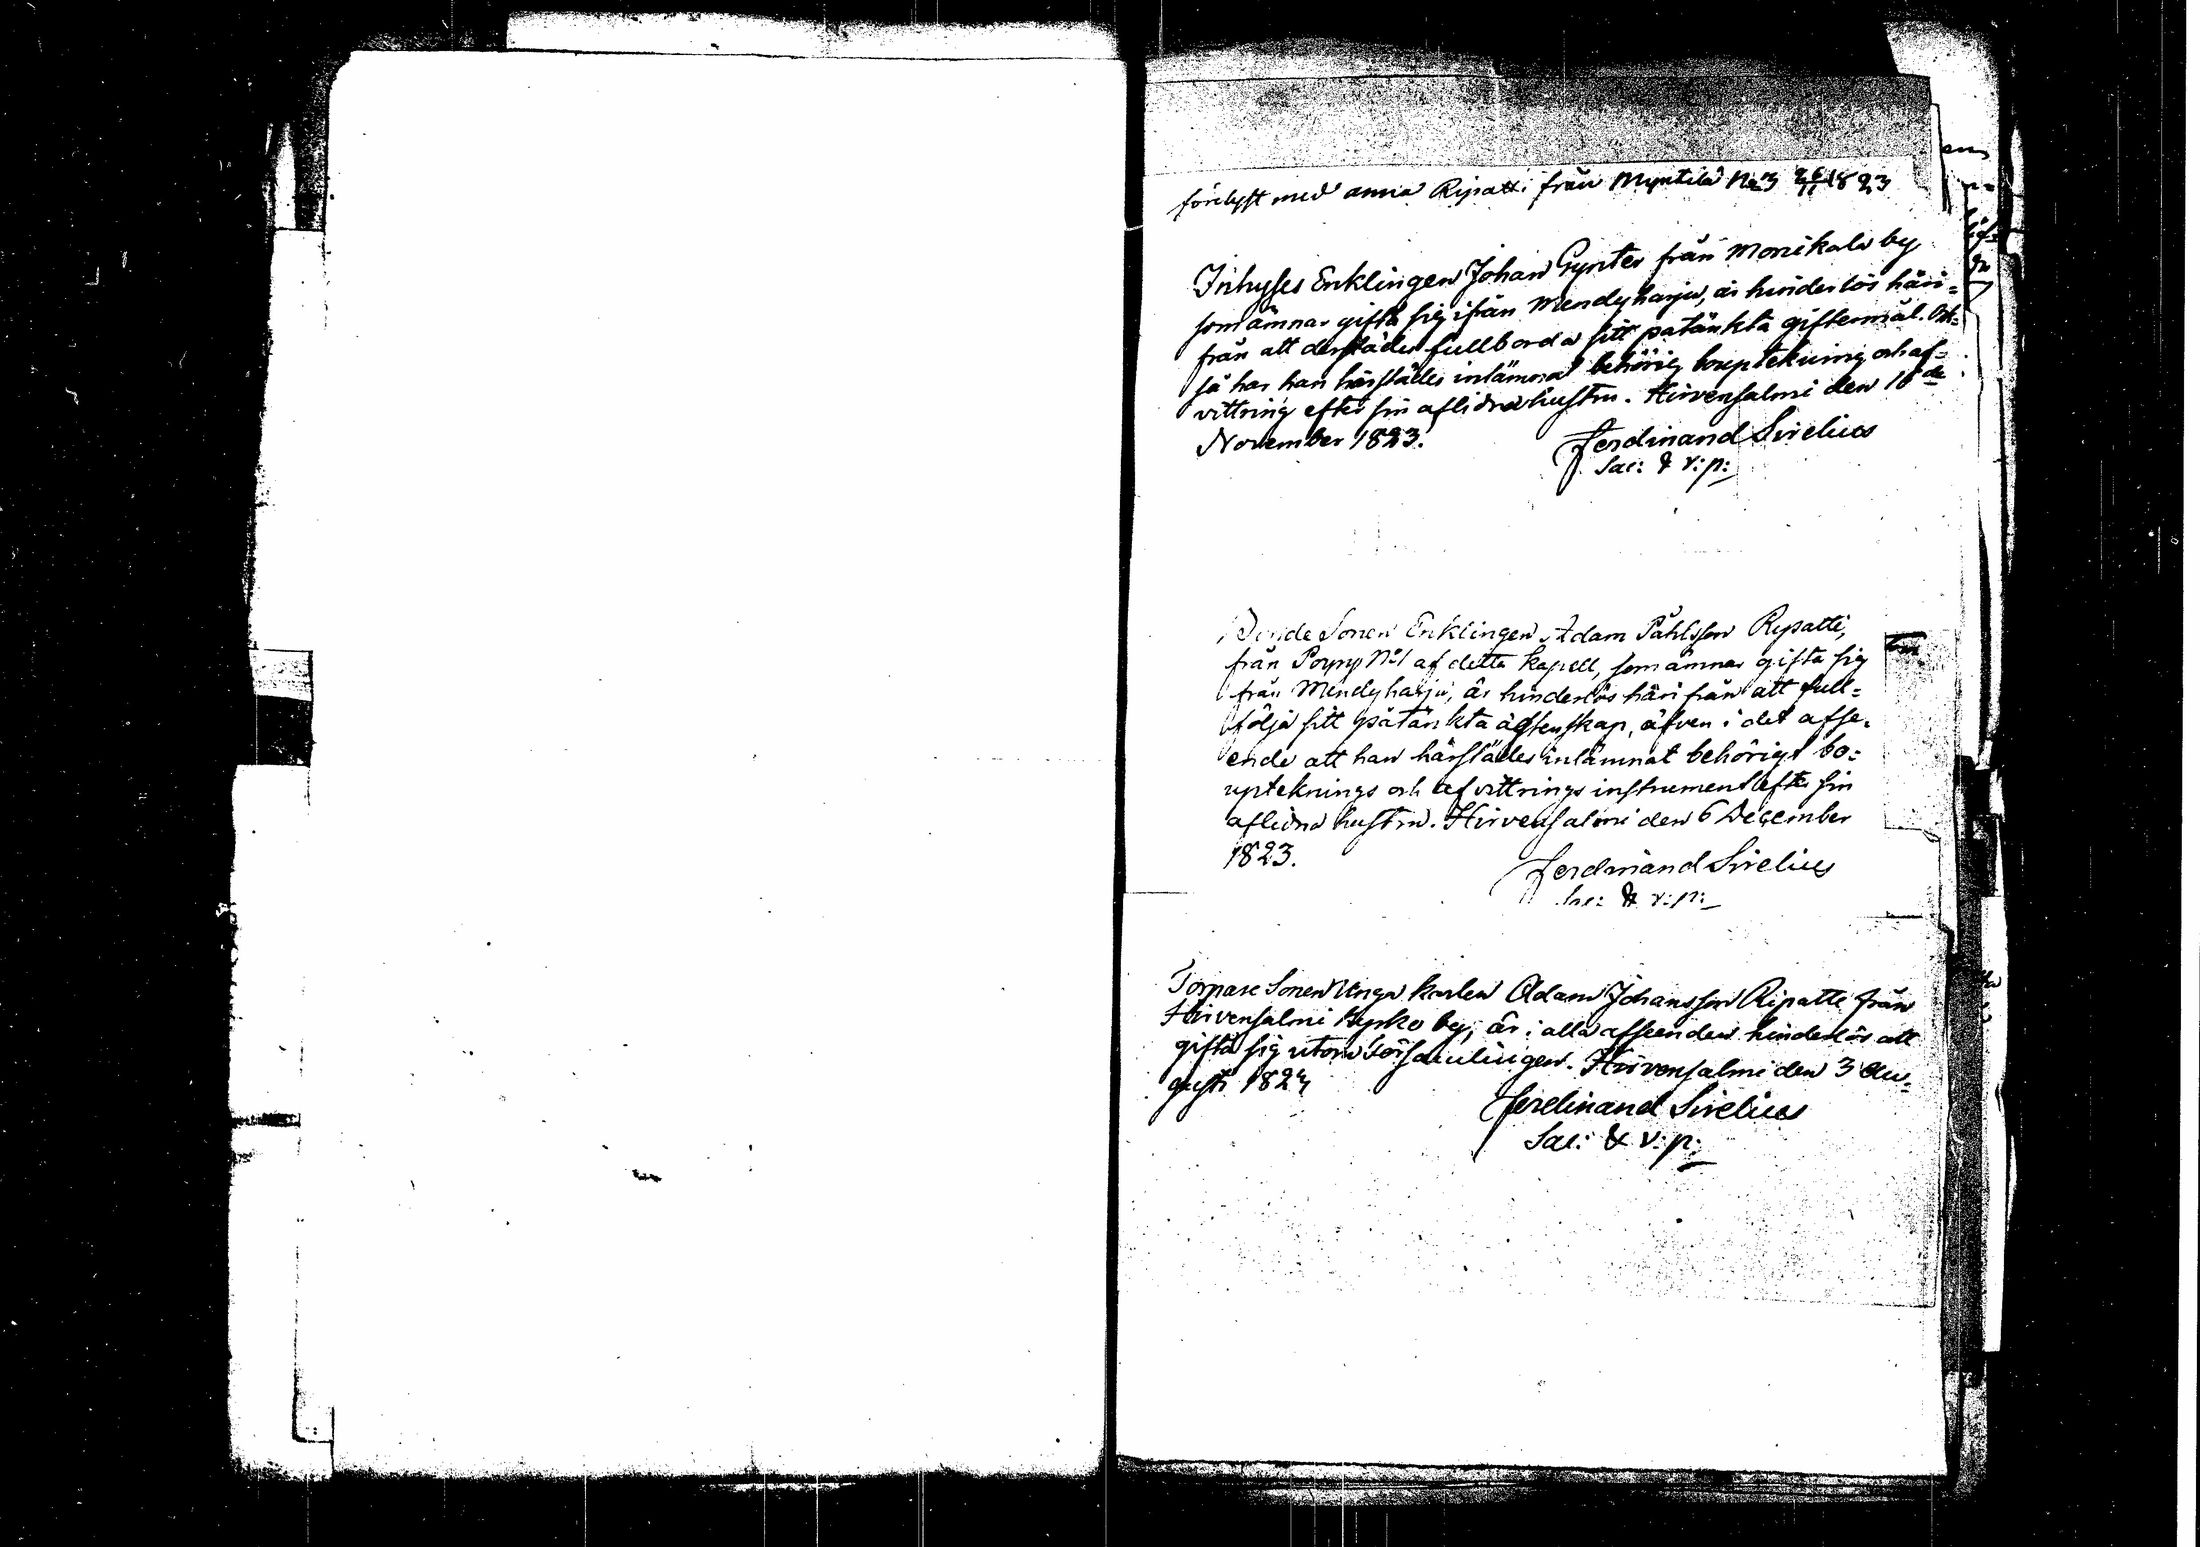 förelyst med anna Ripatti från Myntilä No 3 26/11 1823
Inhyses Enklingen Johan Gynter från Monikala by
som ämnar gifta sig ifrån Mendyharju, är hinderlös häri=
från att derstädes fullborda sitt påtänkta giftermål. Ock=
så har han härstädes inlämnat behörig bouptekning och af=
vittring efter sin aflidna hustru. Hirvensalmi den 16de
November 1823.
Ferdinand Sirelius
Sac: & v: p:
Bonde Sonen Enklingen Adam Påhlsson Ripatti,
från Pöyry No 1 af detta kapell, som ämnar gifta sig
från Mendyharju, är hinderlös härifrån att full=
följa sitt påtänkta ägtenskap, äfven i det afse=
ende att han härstädes inlämnat behörigt bo=
upteknings och afvittrings instrument efter sin
aflidna hustru. Hirvensalmi den 6 December
1823.
Ferdinand Sirelius
Sac: & v: p:
Torpare Sonen Unga karlen Adam Johansson Ripatte från
Hirvensalmi by, är i alla afseenden hinderlös att
gifta sig utom Församlingen. Hirvensalmi den 3 Au=
gusti 1824
Ferdinand Sirelius
Sac: & v: p: